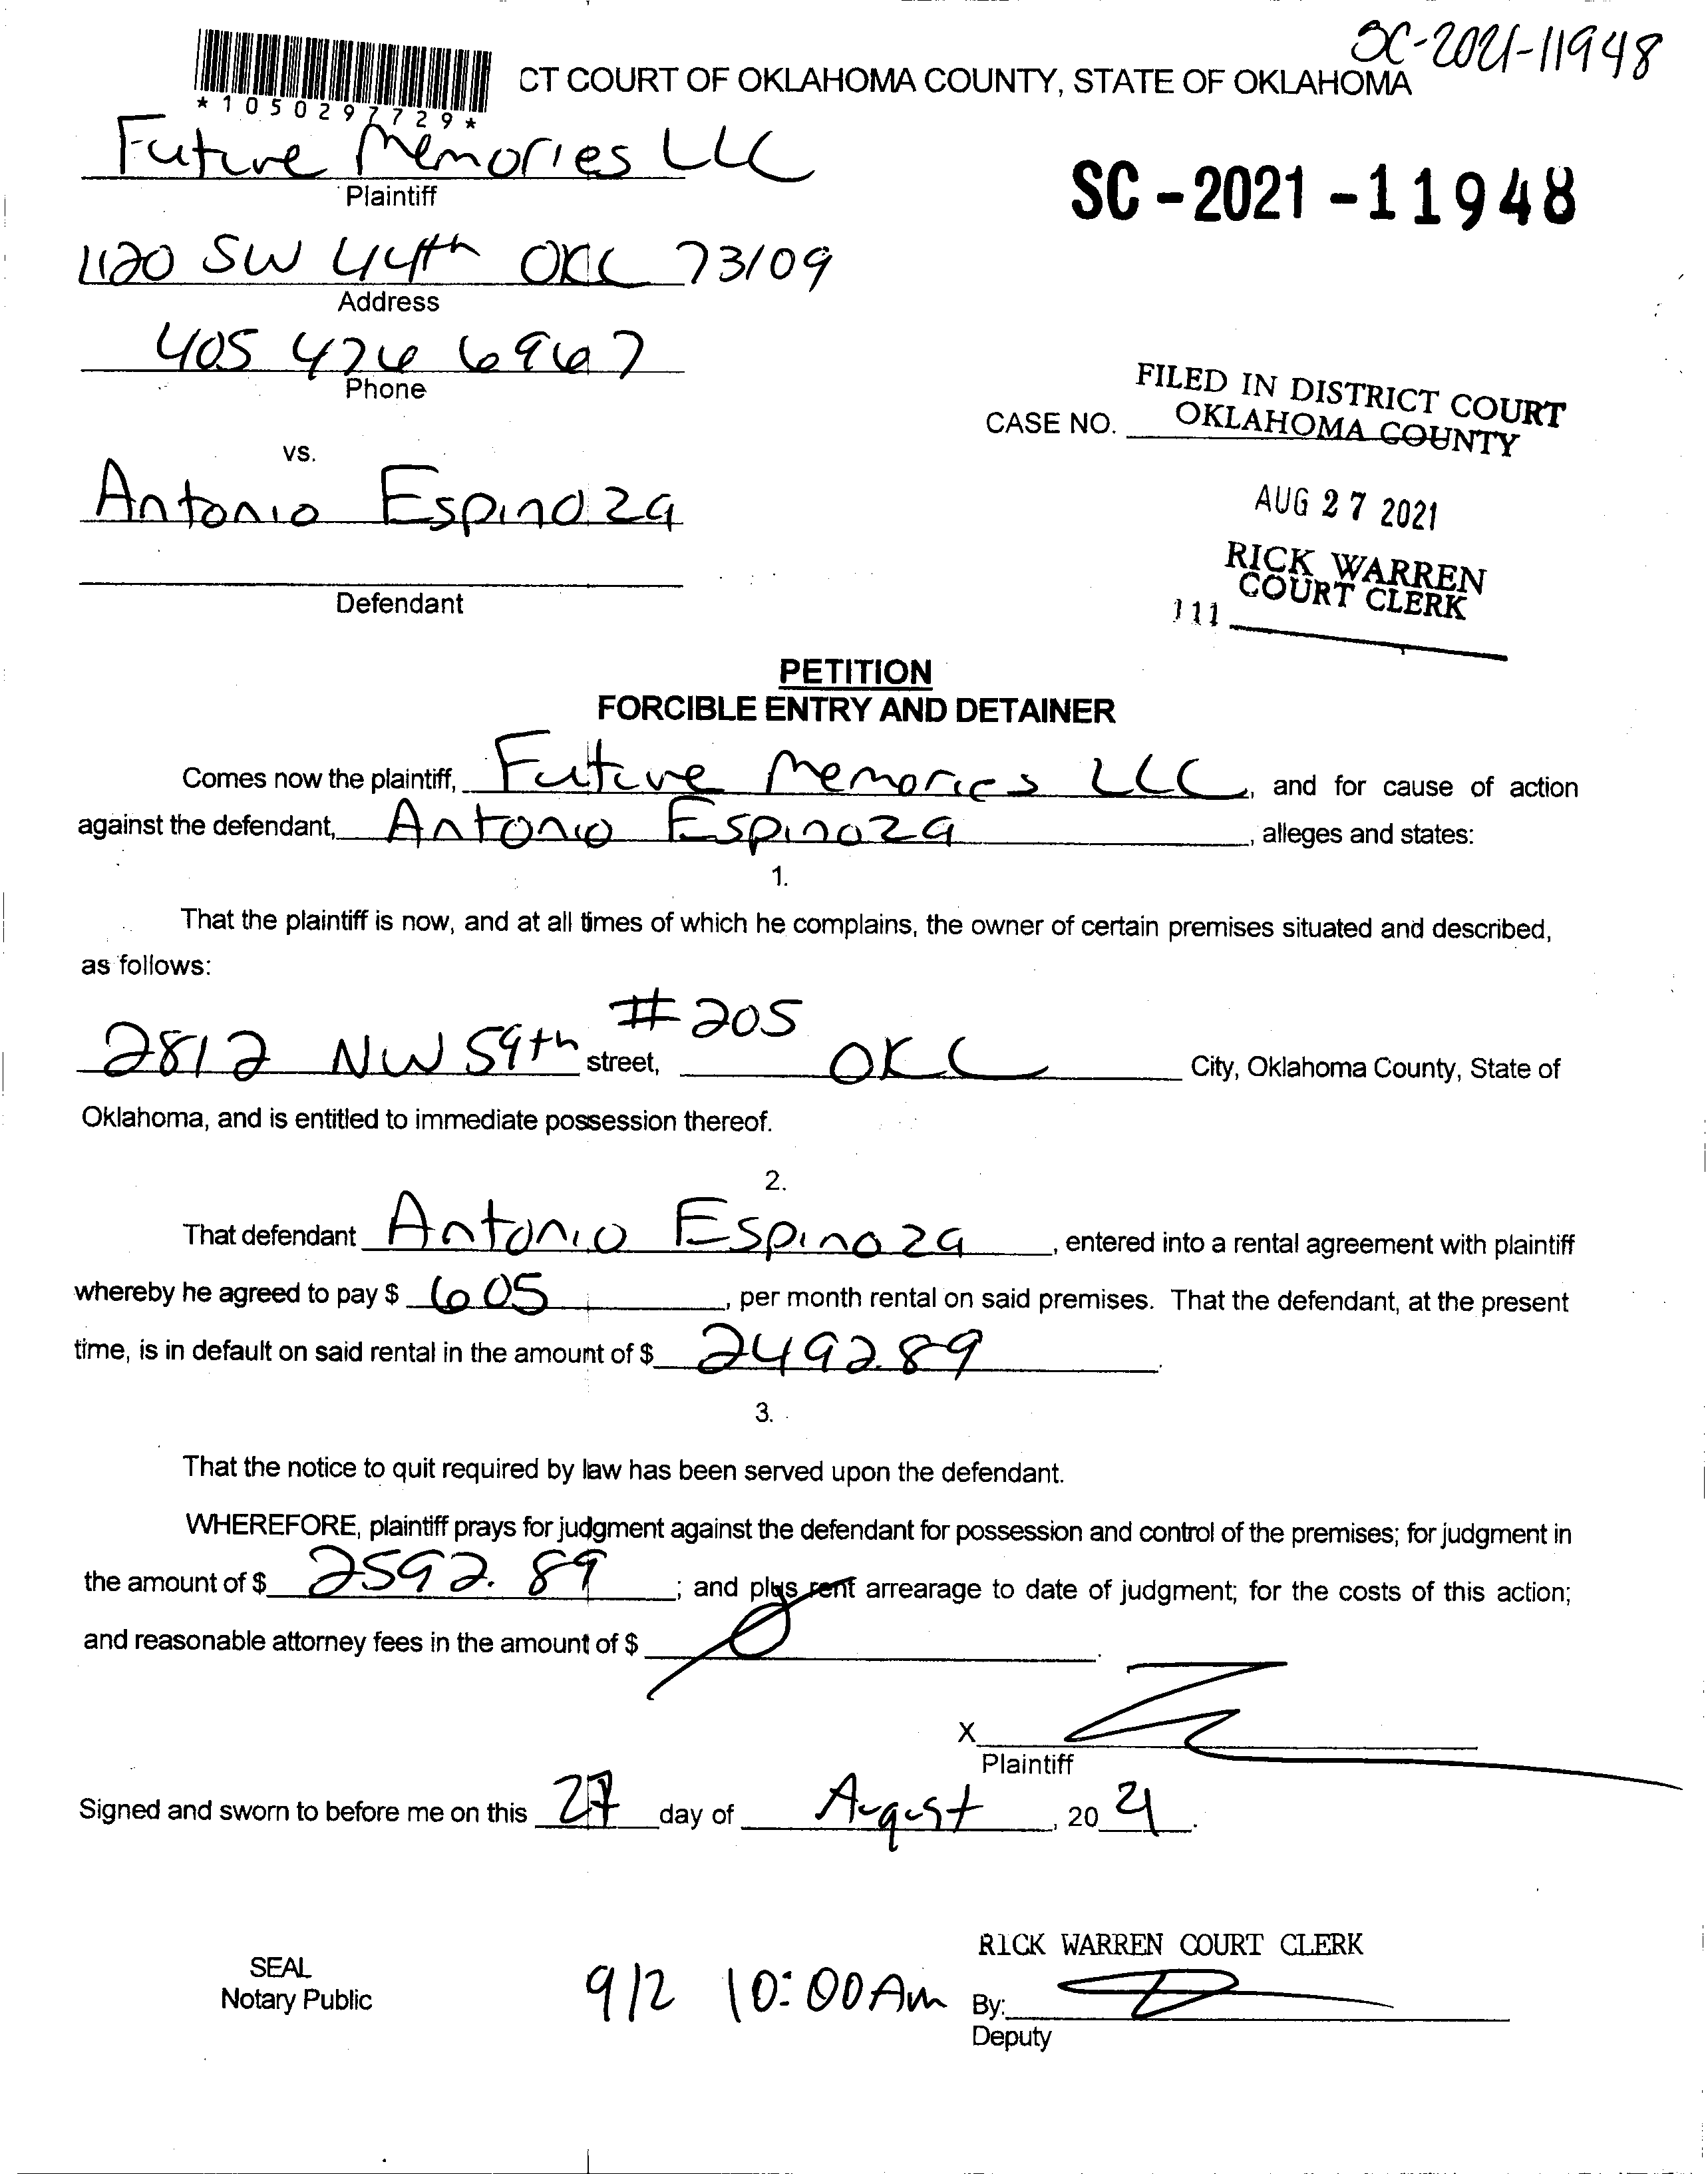 SC-2021-11948
*1050297729*
CT COURT OF OKLAHOMA COUNTY, STATE OF OKLAHOMA
Future Memories LLC
Plaintiff
SC-2021-11948
1120 SW 44th OKC 73109
Address
405 476 6967
Phone
FILED IN DISTRICT COURT
OKLAHOMA COUNTY
CASE NO.
vs.
Antonio Espinoza
AUG 27 2021
RICK WARREN
COURT CLERK
111
Defendant
PETITION
FORCIBLE ENTRY AND DETAINER
Comes now the plaintiff, Future Memories LLC, and for cause of action
against the defendant, Antonio Espinoza, alleges and states:
1.
That the plaintiff is now, and at all times of which he complains, the owner of certain premises situated and described,
as follows:
#205
2812 NW 59th street, OKC City, Oklahoma County, State of
Oklahoma, and is entitled to immediate possession thereof.
2.
That defendant Antonio Espinoza, entered into a rental agreement with plaintiff
whereby he agreed to pay $ 605, per month rental on said premises. That the defendant, at the present
time, is in default on said rental in the amount of $ 2492.89.
3.
That the notice to quit required by law has been served upon the defendant.
WHEREFORE, plaintiff prays for judgment against the defendant for possession and control of the premises; for judgment in
the amount of $ 2592.89; and plus rent arrearage to date of judgment; for the costs of this action;
and reasonable attorney fees in the amount of $ 0.
X
Plaintiff
Signed and sworn to before me on this 27 day of August, 20 21.
RICK WARREN COURT CLERK
SEAL
Notary Public
9/2 10:00 Am
By:
Deputy